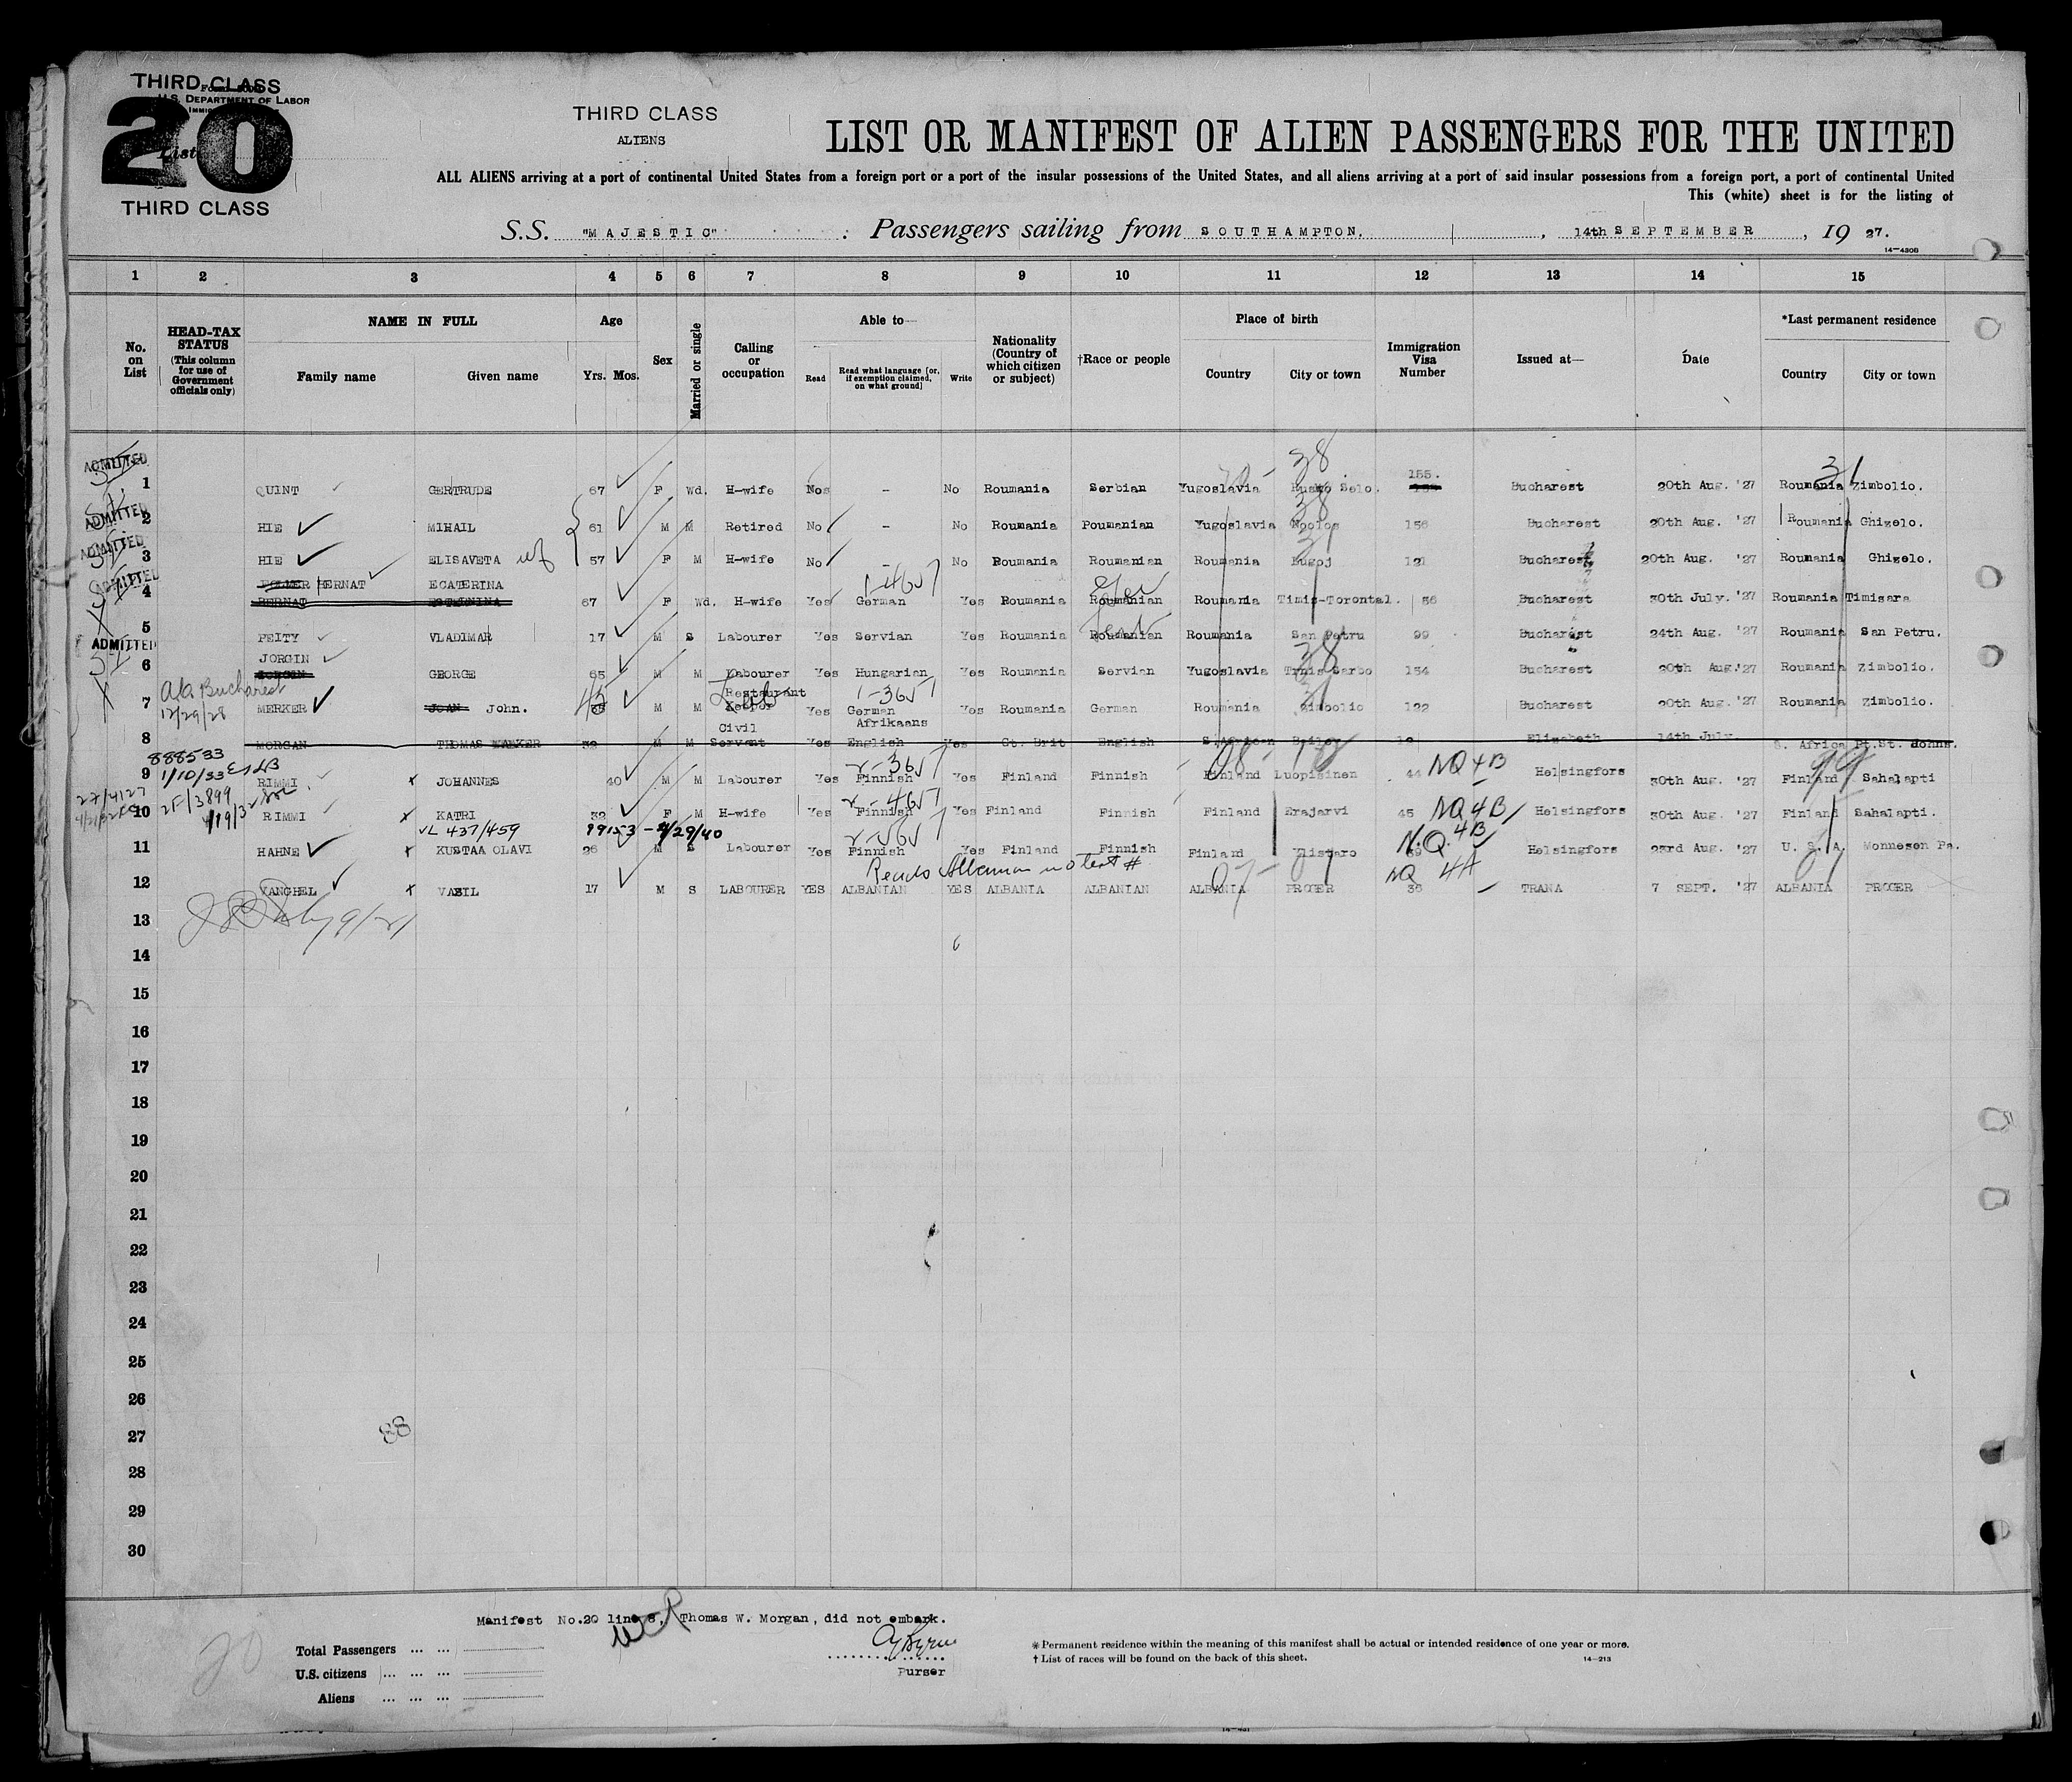 THIRD CLASS
U.S. DEPARTMENT OF LABOR
20
List
THIRD CLASS
THIRD CLASS
ALIENS
LIST OR MANIFEST OF ALIEN PASSENGERS FOR THE UNITED
ALL ALIENS arriving at a port of continental United States from a foreign port or a port of the insular possessions of the United States, and all aliens arriving at a port of said insular possessions from a foreign port, a port of continental United
This (white) sheet is for the listing of
S.S. "MAJESTIC" : Passengers sailing from SOUTHAMPTON. , 14th SEPTEMBER , 19 27.
14-430B
1 2 3 4 5 6 7 8 9 10 11 12 13 14 15
No. on List
HEAD-TAX STATUS (This column for use of Government officials only)
NAME IN FULL
Family name Given name
Age
Yrs. Mos.
Sex
Married or single
Calling or occupation
Able to—
Read Read what language [or, if exemption claimed, on what ground] Write
Nationality (Country of which citizen or subject)
†Race or people
Place of birth
Country City or town
Immigration Visa Number
Issued at—
Date
*Last permanent residence
Country City or town
ADMITTED 38 155. 31
1 QUINT GERTRUDE 67 F Wd. H-wife No - No Roumania Serbian Yugoslavia Selo. Bucharest 20th Aug. '27 Roumania Zimbolio.
ADMITTED 38
2 HIE MIHAIL 61 M M Retired No - No Roumania Poumanian Yugoslavia 156 Bucharest 20th Aug. '27 Roumania Ghizelo.
ADMITTED 31
3 HIE ELISAVETA wf 57 F M H-wife No - No Roumania Roumanian Roumania Lugoj 121 Bucharest 20th Aug. '27 Roumania Ghizelo.
ADMITTED BERNAT ECATERINA 1-4651
4 BERNAT 67 F Wd. H-wife Yes German Yes Roumania Roumanian Roumania Timis-Torontal. 56 Bucharest 30th July. '27 Roumania Timisara
5 PEITY VLADIMAR 17 M S Labourer Yes Servian Yes Roumania Roumanian Roumania San Petru 99 Bucharest 24th Aug. '27 Roumania San Petru.
ADMITTED JORGIN 38
6 GEORGE 65 M M Labourer Yes Hungarian Yes Roumania Servian Yugoslavia 154 Bucharest 20th Aug. '27 Roumania Zimbolio.
a/a Bucharest 12/29/28 Restaurant 1-3651
7 MERKER JOAN John. M M Keeper Yes German Yes Roumania German Roumania Zimbolio 122 Bucharest 20th Aug. '27 Roumania Zimbolio.
Civil Afrikaans
8 MORGAN THOMAS WALKER 52 M M Servant Yes English Yes Gt. Brit English S.African Elizabeth 14th July. S. Africa Pt.St. Johns.
888533 1/10/33 2-3651 NQ 4B 99
9 RIMMI x JOHANNES 40 M M Labourer Yes Finnish Yes Finland Finnish Finland Luopisinen 44 Helsingfors 30th Aug. '27 Finland Sahalapti
27/4127 2F/3899 1/19/32 2-4651 NQ 4B
10 RIMMI x KATRI 32 F M H-wife Yes Finnish Yes Finland Finnish Finland Erajarvi 45 Helsingfors 30th Aug. '27 Finland Sahalapti.
VL 437/459 99153 - 4/29/40 N.Q. 4B
11 HAHNE x KUSTAA OLAVI 26 M S Labourer Yes Finnish Yes Finland Finnish Finland Ylistaro 69 Helsingfors 23rd Aug. '27 U. S. A. Monnesen Pa.
Reads Albanian no test # NQ 4A
12 VANGHEL x VASIL 17 M S LABOURER YES ALBANIAN YES ALBANIA ALBANIAN ALBANIA PROGER 36 TRANA 7 SEPT. '27 ALBANIA PROGER
13 9/21
14
15
16
17
18
19
20
21
22
23
24
25
26
27 88
28
29
30
Manifest No.20 line 8, Thomas W. Morgan, did not embark.
Total Passengers ... ...
U.S. citizens ... ... ...
Aliens ... ... ...
Purser
20
* Permanent residence within the meaning of this manifest shall be actual or intended residence of one year or more.
† List of races will be found on the back of this sheet.
14-213